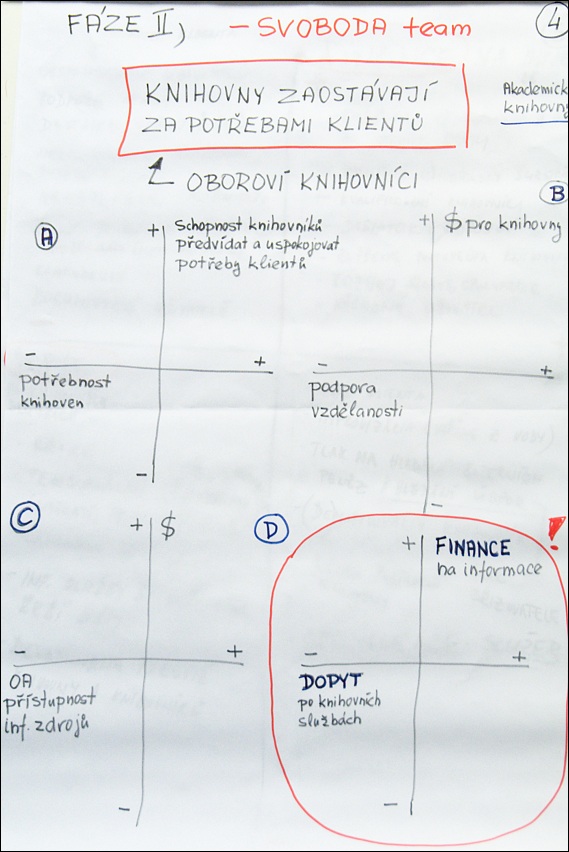 FÁZE II, – SVOBODA team
4
KNIHOVNY ZAOSTÁVAJÍ
ZA POTŘEBAMI KLIENTŮ
Akademick
knihovny
OBOROVÍ KNIHOVNÍCI
A
+ Schopnost knihovníků
předvídat a uspokojovat
potřeby klientů
– +
potřebnost
knihoven
–
B
+ $ pro knihovny
– +
podpora
vzdělanosti
–
C
+ $
– +
OA
přístupnost
inf. zdrojů
–
D
!
+ FINANCE
na informace
– +
DOPYT
po knihovních
službách
–